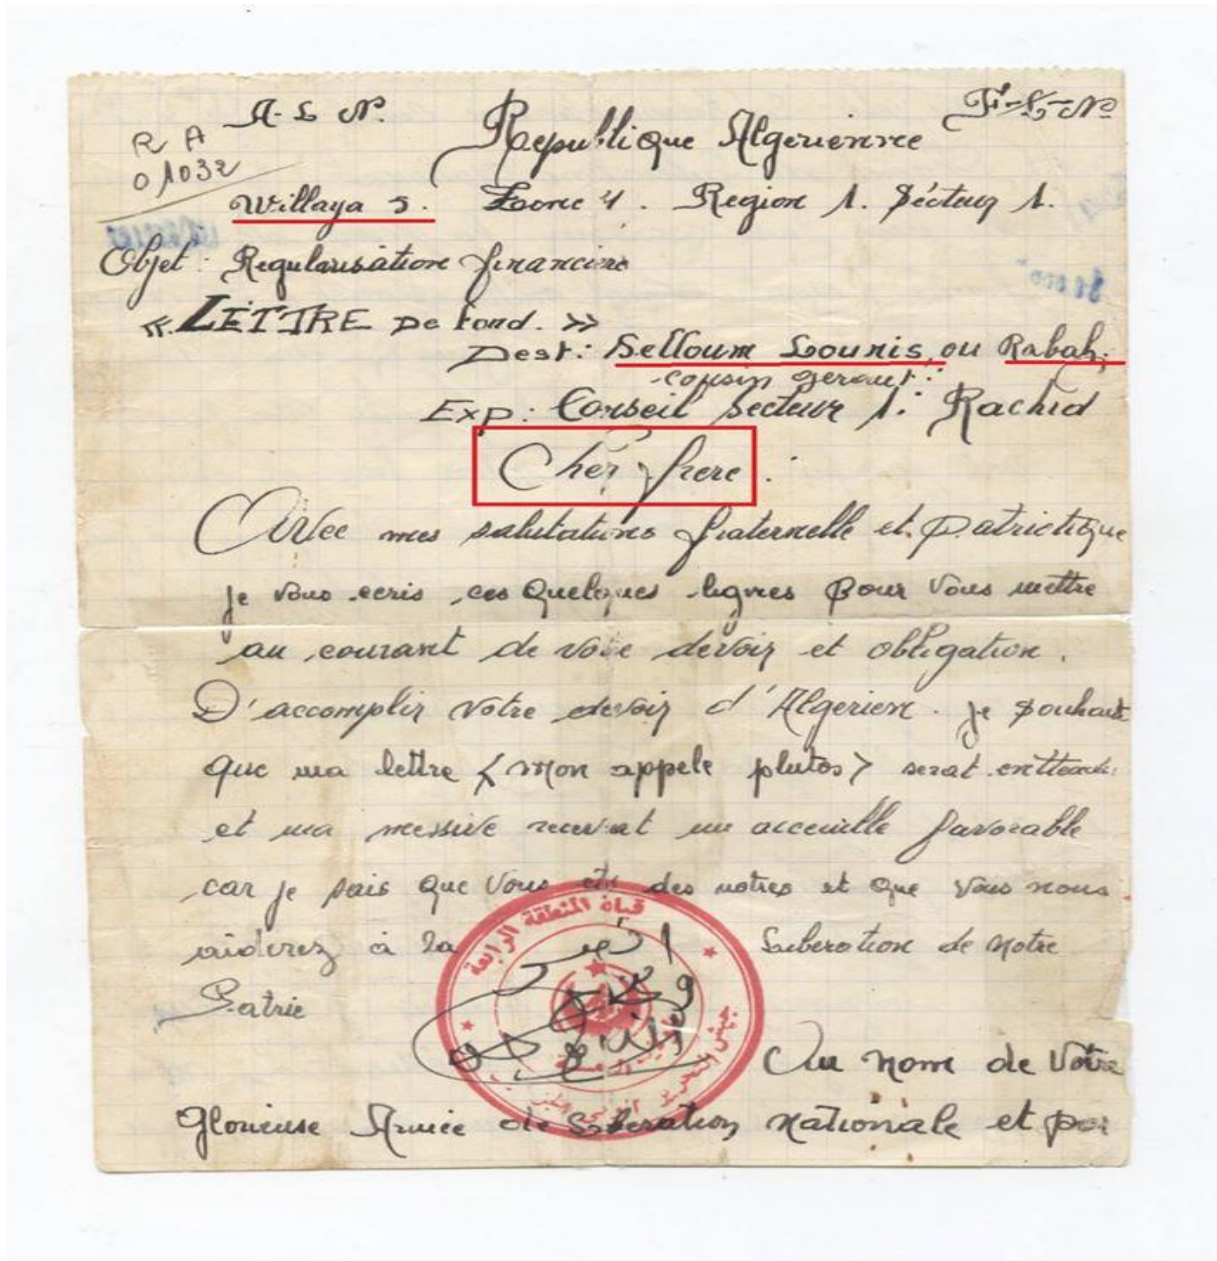 A-L N. Republique Algerienne F-L-N
R A
01032
Willaya 5. Zone 4. Region 1. Sécteur 1.
Objet: Regularisation financiere
"LETTRE De Fond. »
Dest: Selloum Lounis, ou Rabah,
cousin gerant:
Exp: Conseil Secteur 1: Rachid
Cher frere.
Avec mes salutations fraternelle et Patriotique
je vous ecris ces Quelques lignes Pour Vous mettre
au courant de votre devoir et obligation.
D'accomplir votre devoir d'Algerien. je souhaite
que ma lettre < mon appele plutos > serat
et ma messive recevrat un acceuille favorable
car je sais que Vous des notres et que vous nous
aiderez à la Liberation de notre
Patrie
قيادة المنطقة الرابعة
جيش التحرير
Au nom de Votre
Glorieuse Armée de Liberation nationale et par